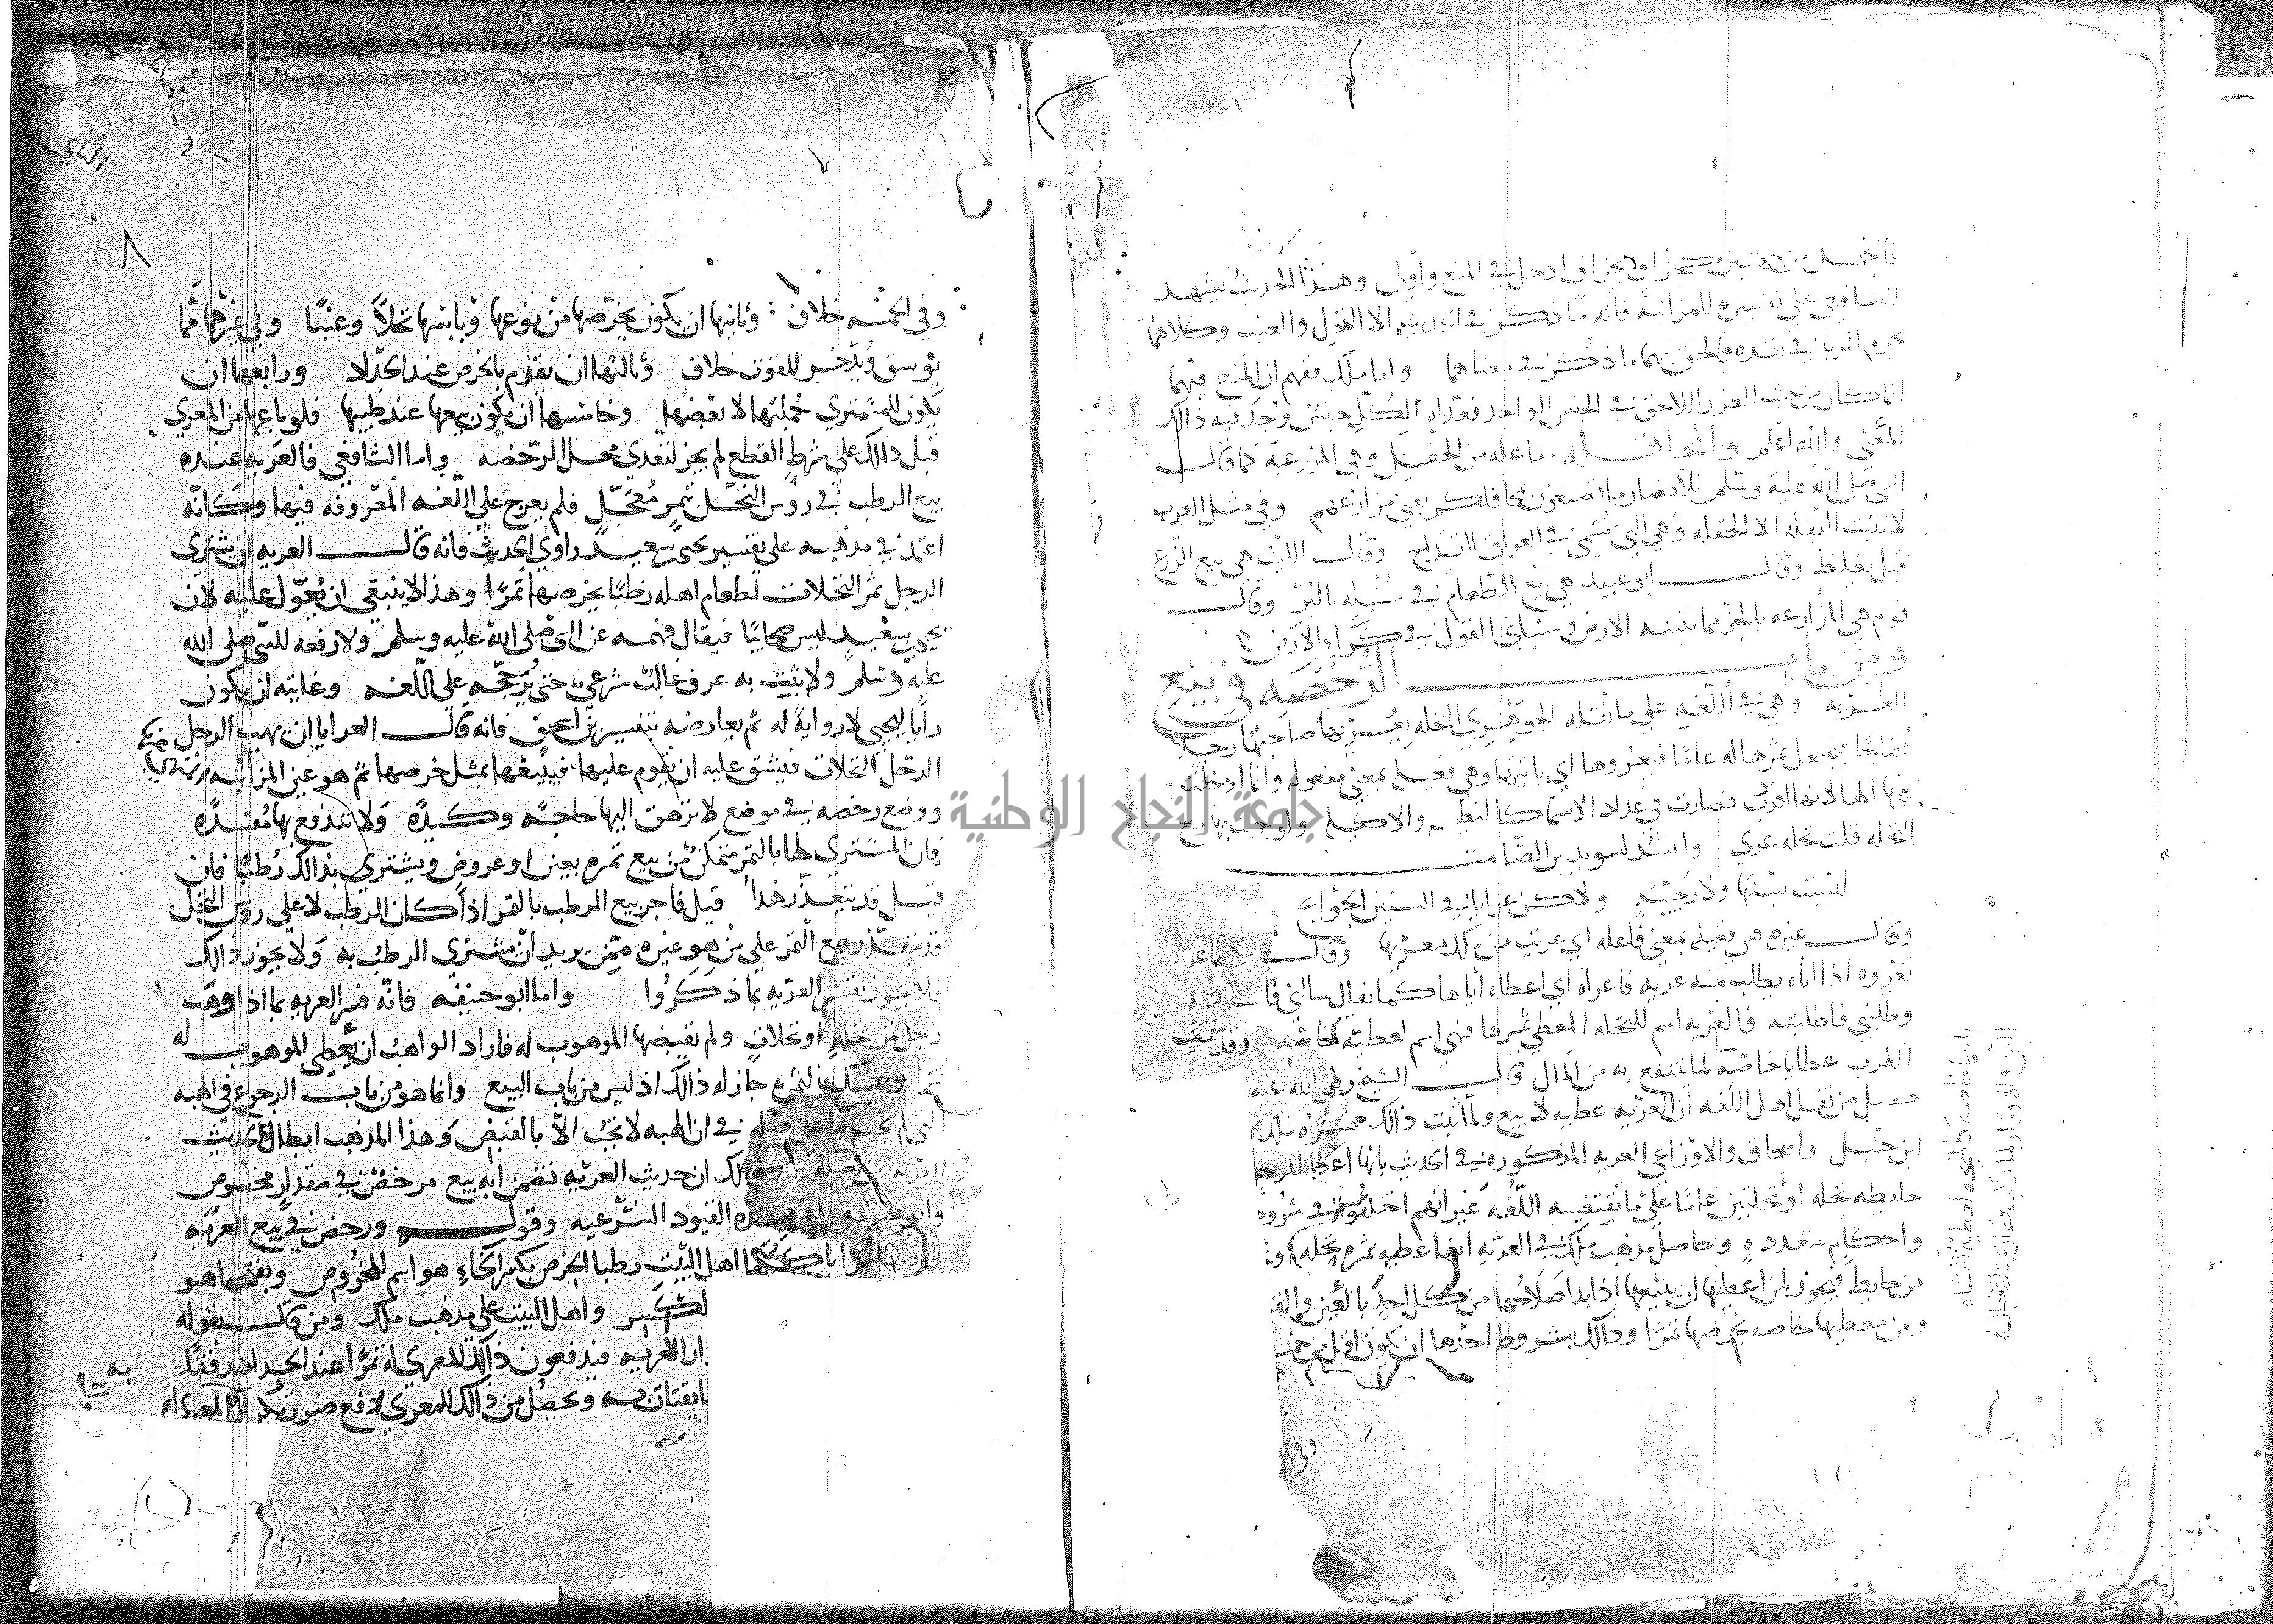 ادخل في المنع واولى وهذا الحديث يشهد
للشافعي على تفسيره للمزابنة فانه ما ذكر في الحديث الا النخل والعنب وكلاهما
يحرم الربا في نقده فالحق بهما ما في معناهما واما ملك ففهم ان المنع فيهما
انما كان من حيث الغرر اللاحق في الجنس الواحد فعداه لكل جنس وجد فيه ذالك
المعنى والله اعلم والمحاقله مفاعله من الحقل وهي المزرعة كما قال
النبي صلى الله عليه وسلم للانصار ما تصنعون بمحاقلكم يعني مزارعهم وفي مثل العرب
لا تنبت البقله الا الحقله وهي التي تسمى في العراق القراح وقال الليث هي بيع الزرع
قبل يغلظ وقال ابو عبيد هي بيع الطعام في سنبله بالبر وقال
قوم هي المزارعه بالجزء مما تنبته الارض وسياتي القول في كراء الارض
ومن باب الرخصه في بيع
العريه وهي في اللغه على ما نقله الجوهري النخله يعريها صاحبها رجلا
محتاجا فيجعل ثمرها له عاما فيعروها اي ياتيها وهي فعيله بمعنى مفعوله وانما ادخلت
فيها الها لانها افردت فصارت في عداد الاسما كالنطيحه والاكيله ولو جيت بها مع
النخله قلت نخله عري وانشد لسويد بن الصامت
ليست بسنها ولا رجبيه ولاكن عرايا في السنين الجوايح
وقال غيره هي فعيله بمعنى فاعله اي عريت من ملك معريها وقال غيرهما
تعروه اذا اتاه يطلب منه عريه فاعراه اي اعطاه اياها كما يقال سالني فاسالته
وطلبني فاطلبته فالعريه اسم للنخله المعطي ثمرها فهي اسم لعطيه خاصه وقد سمت
العرب عطايا خاصه لما ينتفع به من المال قال الشيخ رضي الله عنه
حصل من نقل اهل اللغه ان العريه عطيه لا بيع ولما ثبت ذالك فسره ملك
ابن حنبل واسحاق والاوزاعي العريه المذكوره في الحديث بانها اعطا الرجل
حايطه نخله او نخلتين عاما على ما تقتضيه اللغه غير انهم اختلفوا في شروط
واحكام متعدده وحاصل مذهب ملك في العريه انها عطيه ثمره نخله
من حايط فيجوز لمن اعطيها ان يبيعها اذا بدا صلاحها من كل احد بالعين والعر
ومن معطيها خاصه بخرصها تمرا وذالك بشروط احدها ان يكون اقل من خمسه
وفي
وفي الخمسه خلاف وثانيها ان يكون بخرصها من نوعها ويابسها نخلا وعنبا وفي غيرهما مما
يوسق ويدخر للقوت خلاف وثالثها ان يقوم بالخرص عند الجذاذ ورابعها ان
يكون المشتري جملتها لا بعضها وخامسها ان يكون بيعها عند طيبها فلو باعها من المعري
قبل ذالك على شرط القطع لم يجز لتعدي محل الرخصه واما الشافعي فالعريه عنده
بيع الرطب في روس النخل بتمر معجل فلم يعرج على اللغه المعروفه فيها وكانه
اعتمد في مذهبه على تفسير يحيى بن سعيد راوي الحديث فانه قال العريه ان يشتري
الرجل ثمر النخلات لطعام اهله رطبا بخرصها تمرا وهذا لا ينبغي ان يعول عليه لان
يحيى بن سعيد ليس صحابيا فيقال فهمه عن النبي صلى الله عليه وسلم ولا رفعه للنبي صلى الله
عليه وسلم ولا يثبت به عرف غالب شرعي حتى يرجحه على اللغه وغايته ان يكون
رايا ليحيى لا روايه له ثم يعارضه تفسير بن اسحق فانه قال العرايا ان يهب الرجل
الرجل النخلات فيشق عليه ان يقوم عليها فيبيعها بمثل خرصها ثم هو عين المزابنه
ووضع رخصه في موضع لا ترهق اليها حاجه وكيده ولا تندفع بها مفسده
فان المشتري لها بالتمر متمكن من بيع تمره بعين او عروض ويشتري بذالك رطبا فان
قيل قد يتعذر هذا قيل فاجز بيع الرطب بالتمر اذا كان الرطب لا على روس النخل
قد يتعذر بيع التمر على من هو عنده ممن يريد ان يشتري الرطب به ولا يجوز ذالك
فلا يجوز تفسير العريه بما ذكروا واما ابو حنيفه فانه فسر العريه بما اذا وهب
رجل ثمر نخله او نخلات ولم يقبضها الموهوب له فاراد الواهب ان يعطي الموهوب له
تمرا ويتمسك بالثمره جاز له ذالك اذ ليس من باب البيع وانما هو من باب الرجوع في الهبه
التي لم تجب بنا على اصله في ان الهبه لا تجب الا بالقبض وهذا المذهب ابطال لحديث
العريه من اصله وذالك ان حديث العريه تضمن انه بيع مرخص في مقدار مخصوص
وابو حنيفه يلغي هذه القيود الشرعيه وقوله ورخص في بيع العريه
ياكلها اهل البيت رطبا الخرص بكسر الخاء هو اسم للمخروص وبفتحها هو
واهل البيت على مذهب ملك ومن قال بقوله
العريه فيدفعون ذالك للمعري له تمرا عند الجداد رفقا به
ويحصل من ذالك للمعري دفع ضرر تكرار المعرى له